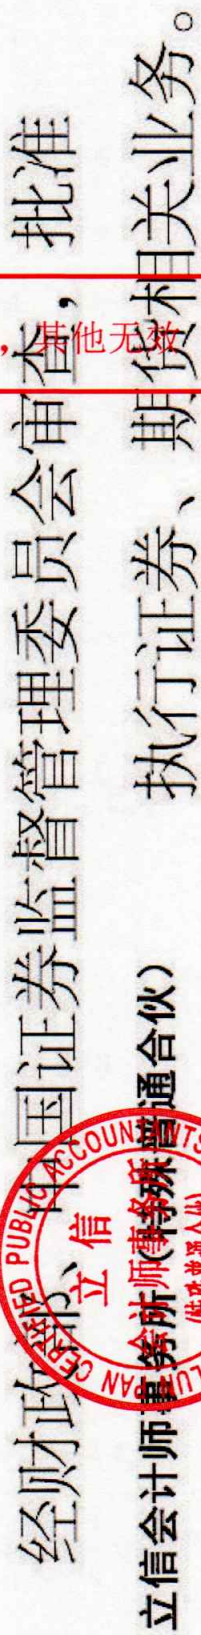 经财政部、中国证券监督管理委员会审查，批准
立信会计师事务所（特殊普通合伙）
执行证券、期货相关业务。
，其他无效
CERTIFIED PUBLIC ACCOUNTANTS
立信
会计师事务所
(特殊普通合伙)
LUN PAN